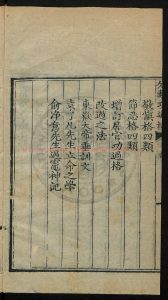 敬慎格四類
節忍格四類
增訂居官功過格
改過之法
東嶽大帝垂訓文
袁了凡先生立命之學
俞淨意先生遇竈神記